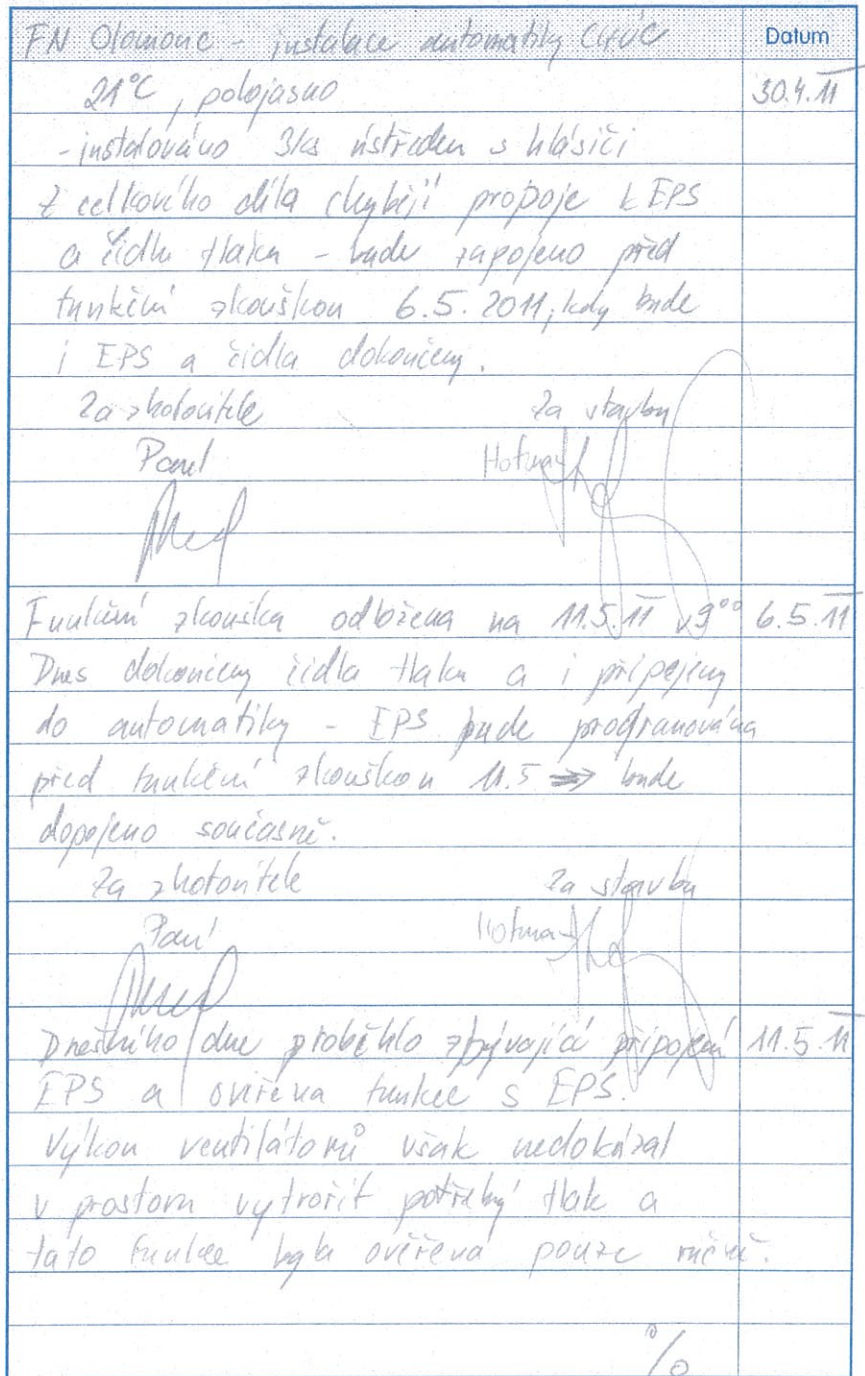 FN Olomouc - instalace automatiky CHÚC Datum
21°C, polojasno 30.4.11
- instalováno 3ks ústředen s hlásiči
z celkového díla chybějí propoje k EPS
a čidlu tlaku - bude zapojeno před
funkční zkouškou 6.5.2011, kdy bude
i EPS a čidla dokončeny.
Za zhotovitele Za stavbu
Hofman
Funkční zkouška odložena na 11.5.11 v 9°° 6.5.11
Dnes dokončeny čidla tlaku a i připojeny
do automatiky - EPS bude programována
před funkční zkouškou 11.5 => bude
dopojeno současně.
Za zhotovitele Za stavbu
Hofman
Dnešního dne proběhlo zbývající připojení 11.5.11
EPS a ověřena funkce s EPS.
Výkon ventilátorů však nedokázal
v prostoru vytvořit potřebný tlak a
tato funkce byla ověřena pouze ručně.
%